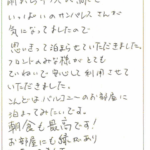 いっぱいのカンパしス さんが
気になってましたので
思いきって泊まらせていただきました。
フロントのみな様がとても
ていねいで安心して利用させて
いただきました。
こんどはバルコニーのお部屋に
泊まってみたいです。
朝食も最高です!
お部屋にも